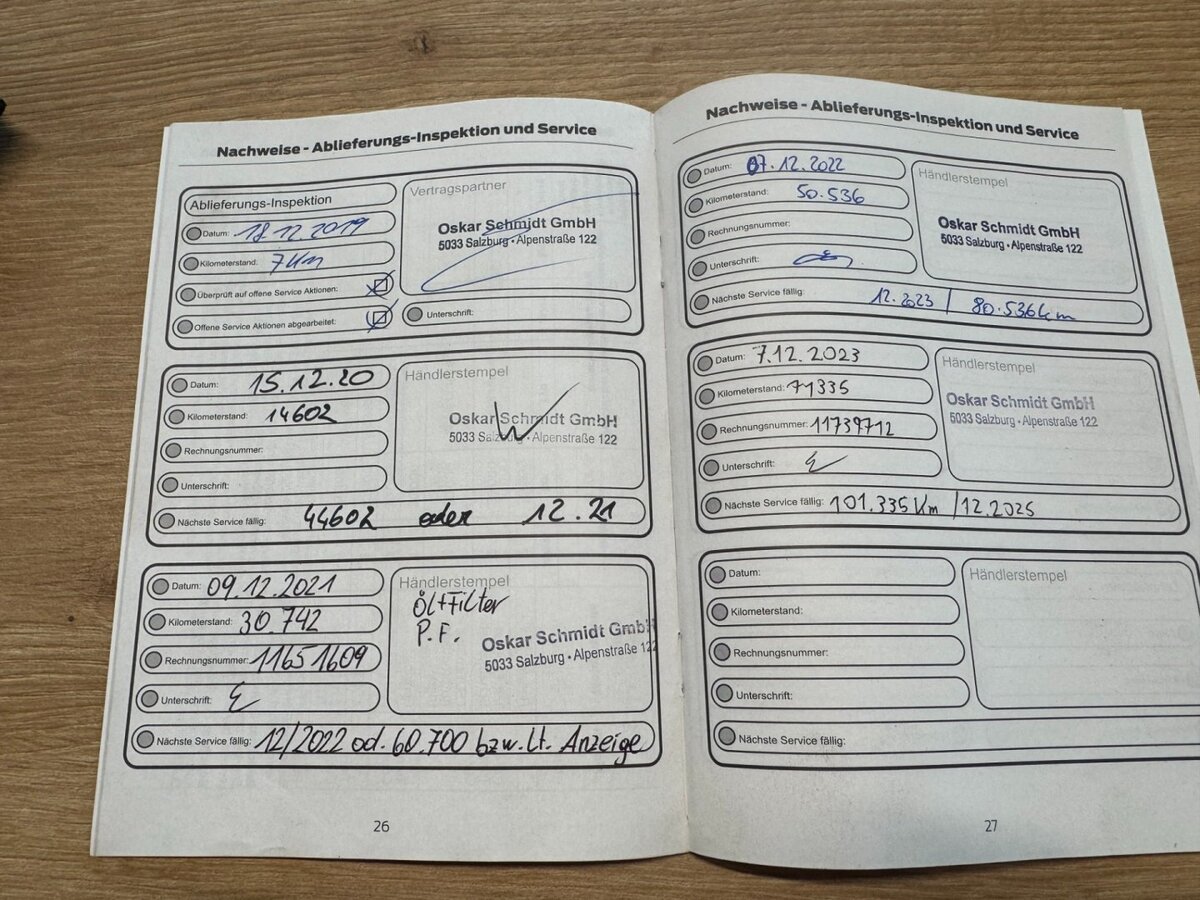 Nachweise - Ablieferungs-Inspektion und Service
Ablieferungs-Inspektion
Datum: 18.12.2019
Kilometerstand: 7 Km
Überprüft auf offene Service Aktionen:
Offene Service Aktionen abgearbeitet:
Vertragspartner
Oskar Schmidt GmbH
5033 Salzburg • Alpenstraße 122
Unterschrift:
Datum: 15.12.20
Kilometerstand: 14602
Rechnungsnummer:
Unterschrift:
Nächste Service fällig: 44602 oder 12.21
Händlerstempel
Oskar Schmidt GmbH
5033 Salzburg • Alpenstraße 122
Datum: 09.12.2021
Kilometerstand: 30.742
Rechnungsnummer: 11651609
Unterschrift:
Nächste Service fällig: 12/2022 od. 60.700 bzw. lt. Anzeige
Händlerstempel
Öl+Filter
P.F.
Oskar Schmidt GmbH
5033 Salzburg • Alpenstraße 122
26
Nachweise - Ablieferungs-Inspektion und Service
Datum: 07.12.2022
Kilometerstand: 50.536
Rechnungsnummer:
Unterschrift:
Nächste Service fällig: 12.2023 | 80.536km
Händlerstempel
Oskar Schmidt GmbH
5033 Salzburg • Alpenstraße 122
Datum: 7.12.2023
Kilometerstand: 71335
Rechnungsnummer: 11739712
Unterschrift:
Nächste Service fällig: 101.335 Km / 12.2025
Händlerstempel
Oskar Schmidt GmbH
5033 Salzburg • Alpenstraße 122
Datum:
Kilometerstand:
Rechnungsnummer:
Unterschrift:
Nächste Service fällig:
Händlerstempel
27